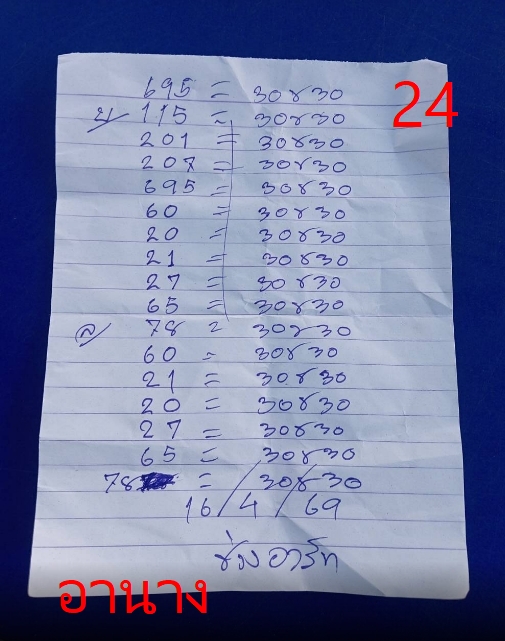 695 = 30x30
24
บ/ 115 = 30x30
201 = 30x30
207 = 30x30
695 = 30x30
60 = 30x30
20 = 30x30
21 = 30x30
27 = 30x30
65 = 30x30
ล/ 78 = 30x30
60 = 30x30
21 = 30x30
20 = 30x30
27 = 30x30
65 = 30x30
78 = 30x30
16/4/69
ช่างอาร์ท
อานาง